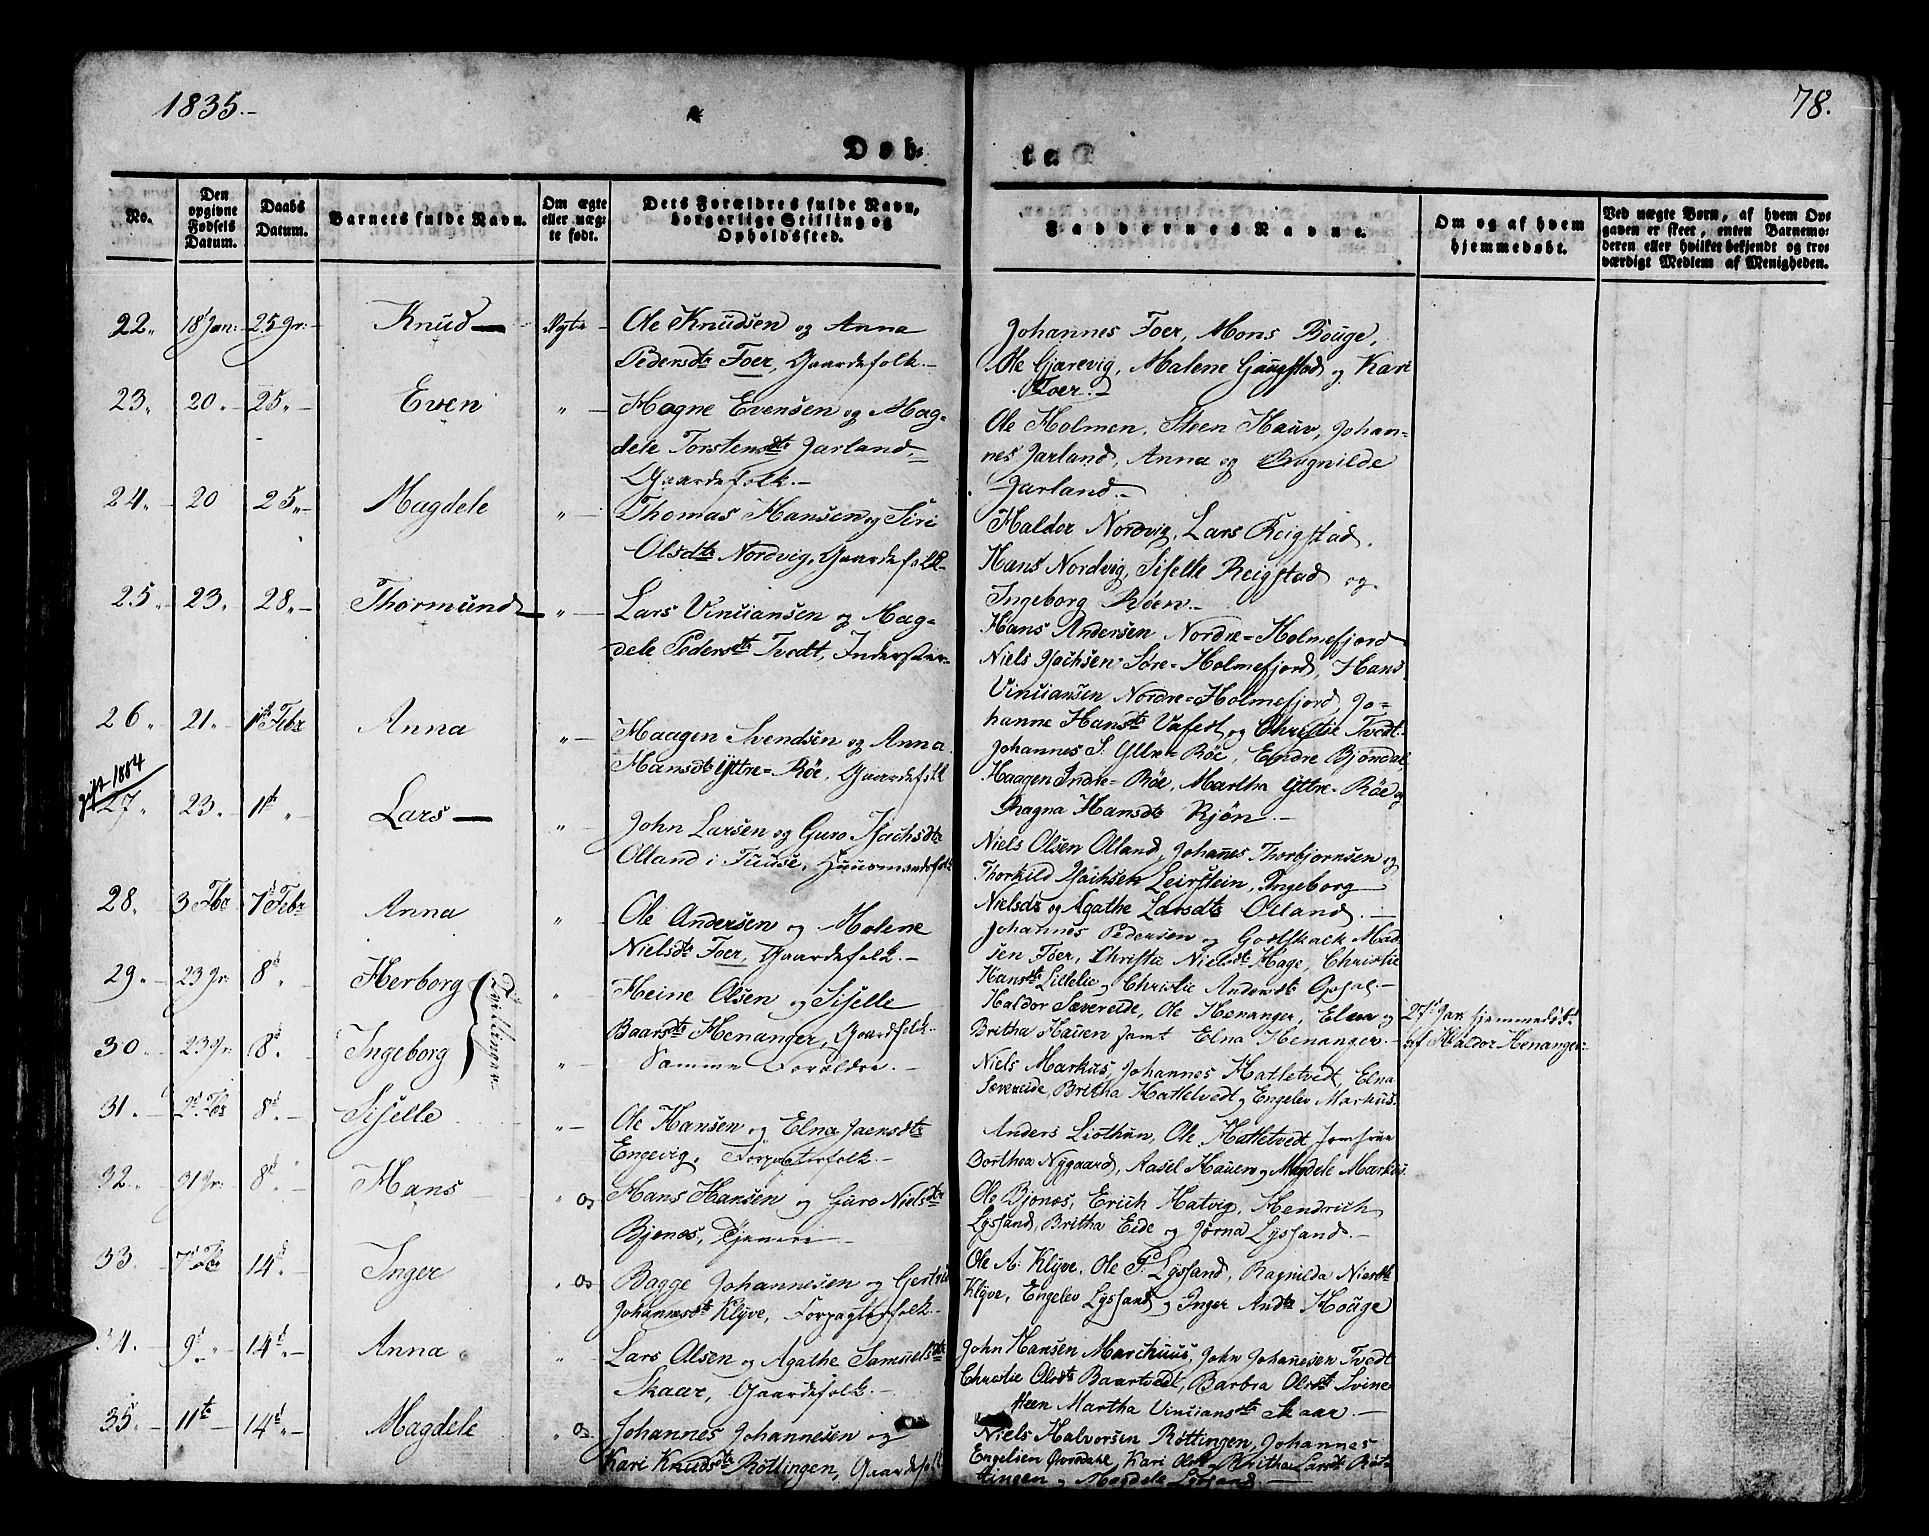 1835.-
78.
Døb-
te
No.
Den opgivne Fødsels Datum.
Daabs Datum.
Barnets fulde Navn.
Om ægte eller uægte født.
Dets Forældres fulde Navn, borgerlige Stilling og Opholdssted.
Faddernes Navne.
Om og af hvem hjemmedøbt.
Ved uægte Børn, af hvem Opgaven er skeet, enten Barnemoderen eller hvilket bekjendt og troværdigt Medlem af Menigheden.
22. 18 Jan: 25 Jr: Knud Ægte Ole Knudsen og Anna
Pedersdtr Foer, Gaardefolk.
Johannes Foer, Mons Bouge,
Ole Gjærevig, Malene Gaugstad og Kari
Foer.
23. 20. 25. Even " Magne Evensen og Mag-
dele Torstensdtr Jarland,
Gaardefolk.
Ole Holmen, Steen Hauv, Johan-
nes Jarland, Anna og Ragnilde
Jarland.
24. 20 25. Magdele " Thomas Hansen og Siri
Olsdtr Nordvig, Gaardefolk
Haldor Nordvig, Lars Reigstad,
Hans Nordvig, Siselle Reigstad og
Ingeborg Røen.
25. 23. 28. Thormund " Lars Vinciansen og Mag-
dele Pedersdtr Tvedt, Inderster
Hans Andersen Nordre-Holmefjord
Niels Isachsen Søre-Holmefjord, Hans
Vinciansen Nordre-Holmefjord, Jo-
hanne Hansdtr Vafest og Christie Tvedt.
26. 21. 1st Febr Anna " Haagen Svendsen og Anna
Hansdtr Yttre-Røe, Gaardefolk
Johannes S. Yttre Røe, Endre Bjøndal,
Haagen Indre-Røe, Martha Yttre-Røe og
Ragna Hansdtr Røen.
gift 1884
27. 23. 1st " Lars " John Larsen og Guro Isachsdtr
Olland i Fuuse, Huusmandsfolk
Niels Olsen Olland, Johannes Thorbjørnsen og
Thorkild Isachsen Leirstein, Ingeborg
Nielsdtr og Agathe Larsdtr Olland.
28. 3 Febr 7 Febr Anna " Ole Andersen og Malene
Nielsdtr Foer, Gaardefolk.
Johannes Pedersen og Godtskalk Mad-
sen Foer, Christa Nielsdtr Hage, Christie
Hansdtr Lillelie og Christie Andersdtr
29. 23 Jr: 8d Herborg " Heine Olsen og Siselle
Baarsdtr Henanger, Gaardfolk.
Tvillinger
Haldor Sævereide, Ole Henanger, Elen og
Britha Hauen samt Elna Henanger.
27d Jan: hjemmedøbt
af Haldor Henanger
30. 23 Jr 8d Ingeborg " Samme Forældre.
Niels Markus, Johannes Hatletvedt, Elna
Sævereide, Britha Hatletvedt og Engelev Markus.
31. 2d Fbr 8d Siselle " Ole Hansen og Elna Jaensdtr
Engevig, Forpagterfolk.
Anders Liothun, Ole Hatletvedt, Jomfrue
Dorthea Nygaard, Aasel Hauen og Magdele Markus.
32. 31 Jr: 8d Hans " Os Hans Hansen og Guro Nielsdtr
Bjenes, Tjenere
Ole Bjenes, Erich Hatvig, Hendrich
Lyssand, Britha Eide og Jorna Lyssand.
33. 7d Fbr 14d Inger " Os Bagge Johannesen og Gertrud
Johannesdtr Klyve, Forpagterfolk.
Ole A. Klyve, Ole P. Lyssand, Ragnilda Nielsdtr
Klyve, Engelev Lyssand og Inger Andtr Houge
34. 9d " 14d Anna " Lars Olsen og Agathe Samuelsdtr
Skaar, Gaardefolk.
John Hansen Marchuus, John Johannesen Tvedt
Christie Olsdtr Baartvedt, Barbra Olsdtr Svine
Heen Martha Vinciansdtr Skaar.
35. 11te 14d Magdele " Os Johannes Johannesen og
Kari Knudsdtr Røttingen, Gaardefolk
Niels Halvorsen Røttingen, Johannes
Engelsen Øvredale, Kari Ols og Britha Larsdtr Røt-
tingen og Magdele Lyssand